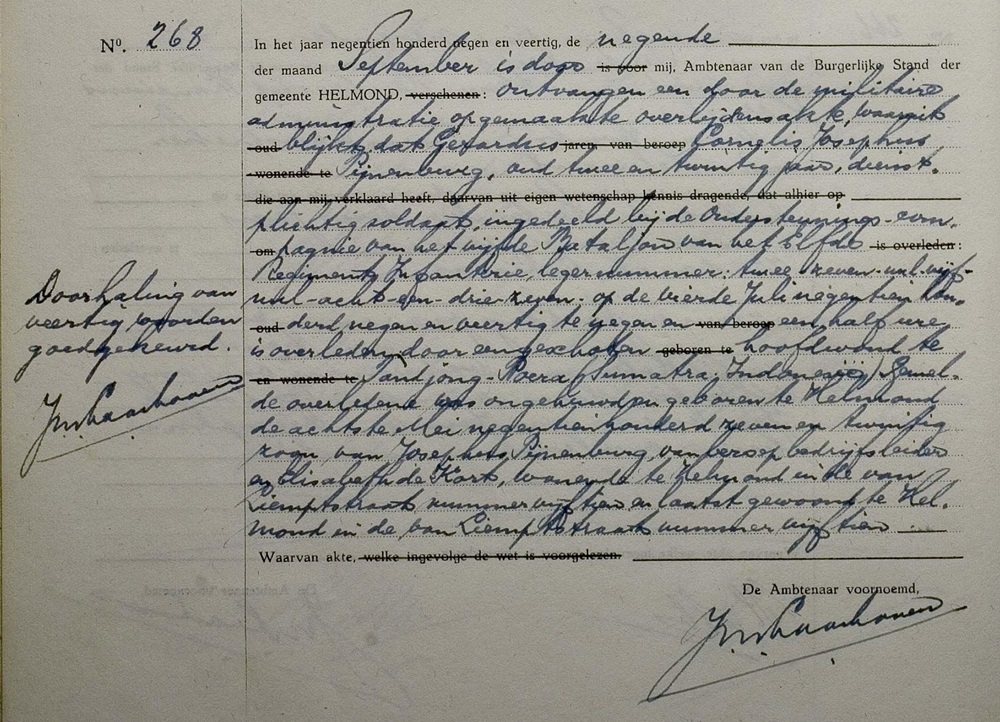 Nº. 268
In het jaar negentien honderd negen en veertig, de negende
der maand September is door is voor mij, Ambtenaar van de Burgerlijke Stand der
gemeente HELMOND, verschenen: ontvangen een door de militaire
administratie opgemaakte overlijdensakte, waaruit
oud blijkt, dat Gerardus jaren, van beroep Cornelis Josephus
wonende te Pijnenburg, oud twee en twintig jaar, dienst-
die aan mij verklaard heeft, daarvan uit eigen wetenschap kennis dragende, dat alhier op
plichtig soldaat, ingedeeld bij de Ondersteunings-com-
om pagnie van het vijfde Bataljon van het Elfde is overleden:
Regiment Infanterie, legernummer: twee-zeven-nul-vijf-
nul-acht-een-drie-zeven- op de vierde Juli negentien hon-
oud derd negen en veertig te negen en van beroep een half ure
is overleden door een geschoten geboren te hoofdwond te
en wonende te Tandjong-Poera (Sumatra, Indonesië) Gemel-
de overledene was ongehuwd en geboren te Helmond
de achtste Mei negentienhonderd zeven en twintig
zoon van Josephus Pijnenburg, van beroep bedrijfsleider
en Elisabeth de Kort, wonende te Helmond in de van
Liemptstraat nummer vijftien en laatst gewoond te Hel-
mond in de van Liemptstraat nummer vijftien
Waarvan akte, welke ingevolge de wet is voorgelezen.
De Ambtenaar voornoemd,
Doorhaling van
veertig woorden
goedgekeurd.